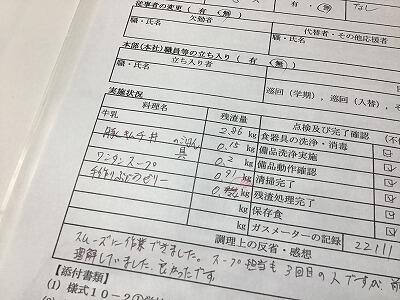 従事者の変更（ 有 ・ 無 ）
有 ・ 無
なし
職・氏名
欠勤者
職・氏名
代替者・その他応援者
本部(本社)職員等の立ち入り（ 有 ・ 無 ）
職・氏名
立ち入り者
巡回（学期），巡回（入替），そ
実施状況
料理名
残渣量
点検及び完了確認
牛乳
2.86 kg
食器具の洗浄・消毒
豚キムチ丼 のごはん
0.15 kg
備品洗浄実施
具
0.2 kg
備品動作確認
ワンタンスープ
0.91 kg
清掃完了
手作りぶどうゼリー
kg
残渣処理完了
kg
保存食
kg
ガスメーターの記録
22111
調理上の反省・感想
スムーズに作業できました。スープ担当も3回目の人ですが、
理解していました。良かったです。
【添付書類】
(1) 様式１０－２